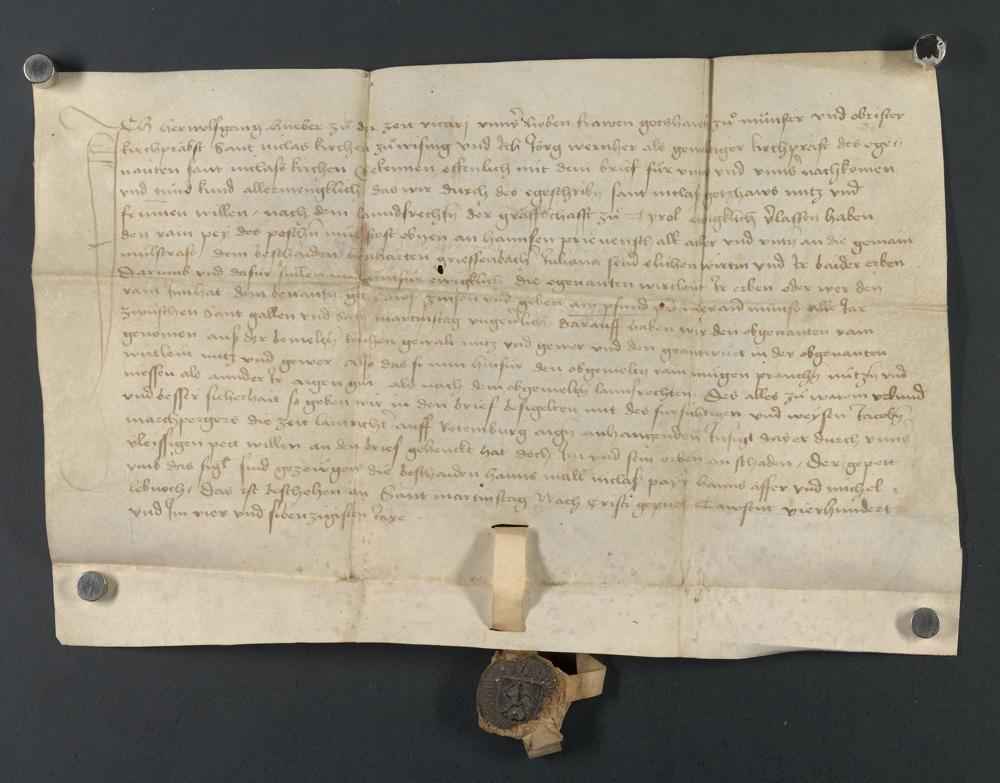 Ich herwolfgang hueber zu der zeit vicarj unnser lieben frawen gotshaus zů münster und obrister
kirchprabst Sant niclas kirchen zu wising und Ich Jörg wernher als gewaltiger kirchprast des ege-
nanten sant niclass kirchen Bekennen offenlich mit dem brief für unns und unnser nachkomen
und tund kund allermengklich das wir durch des egeschriben sant niclas gotzhaws nutz und
frumen willen nach dem lanndsrechten der graffschafft zu Tyrol ewigklich verlassen haben
den rain pey des mulstost obnen an hannsen aker und unten an die gemain
mulstrass dem beschaiden lienharten griessenbach Juliana seiner elichen wirtin und Ir baider erben
Darumb und dafür sullen hinfür ewigklich die egenanten wirtleut Ir erben oder wer den
rain Innhat dem benanten gotzhaws zinsen und geben ain pfund meraner münss alle Jar
zwischen Sant gallen und Sant martinstag ungeverlich Darauff haben wir den obgenanten rain
genomen auss der bemelten kirchen gewalt nutz und gewer und den geantwurt in der obgenanten
wirtleut nutz und gewer Also das sy nun hinfür den obgemelten rain mügen prauchen nützen und
niessen als annder Ir aigen gut als nach dem obgemelten lanndsrechten Des alles zu warem urkund
und besser sicherhait so geben wir in den brief besigelten mit des fürsichtigen und weysen Jacoben
marchpergers die zeit lantricht auff Rotemburg aigen anhangenden Insigl das er durch unnser
vleissigen pett willen an den brief gehenckt hat doch Im und sein erben an schaden Der gepett
umb das sigl sind gezewgen die beschaiden hanns mall niclas payr hanns äffer und michel
lebnoch Das ist beschehen an Sant martinstag Nach Cristi gepurt Tawsent vierhundert
und Im vier und sibenzigisten Jare